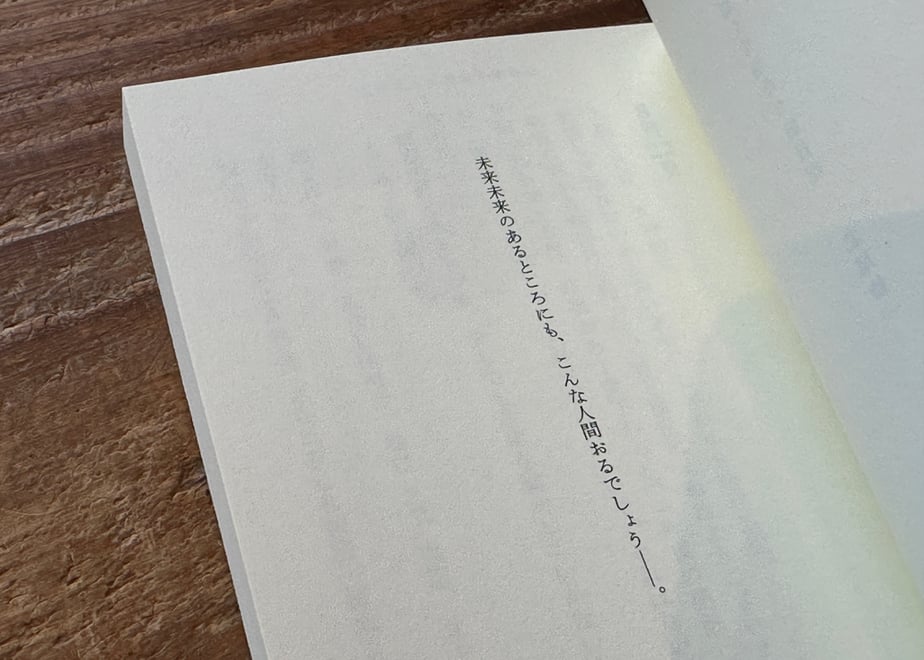 未来未来のあるところにも、こんな人間おるでしょう――。